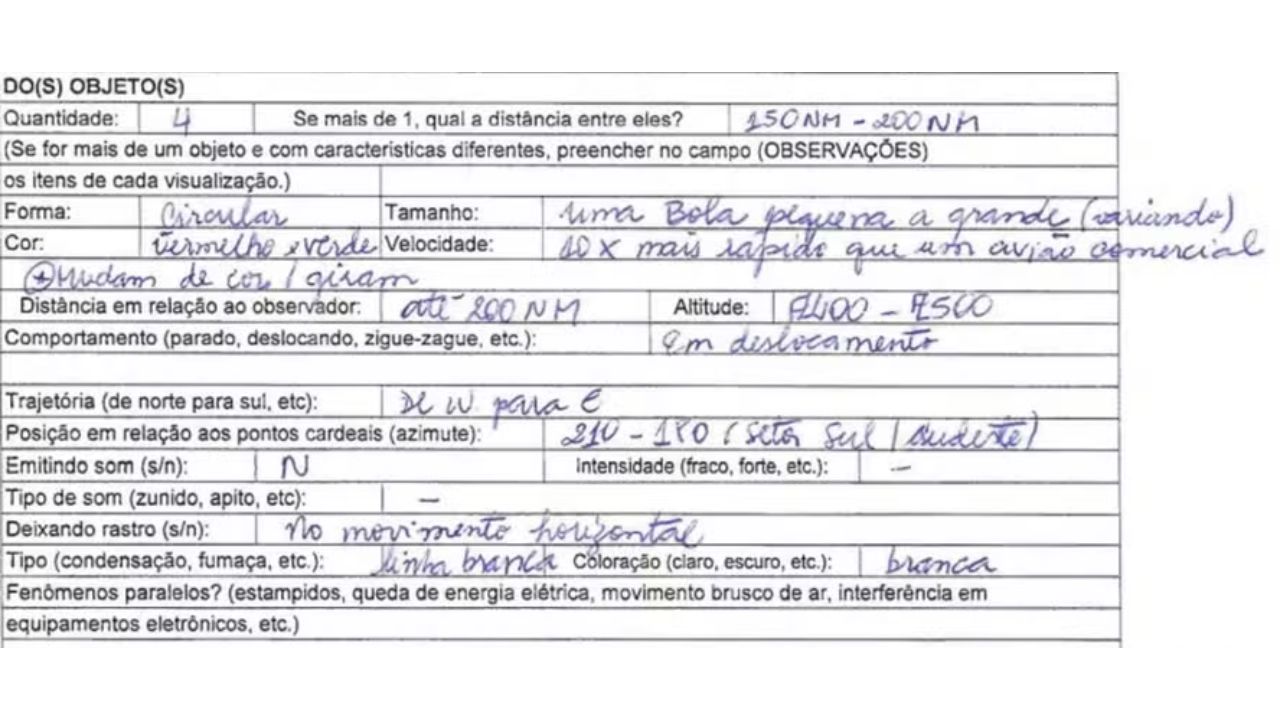 DO(S) OBJETO(S)
Quantidade: 4 Se mais de 1, qual a distância entre eles? 150NM - 200NM
(Se for mais de um objeto e com características diferentes, preencher no campo (OBSERVAÇÕES)
os itens de cada visualização.)
Forma: Circular Tamanho: uma Bola pequena a grande (variando)
Cor: Vermelho e verde Velocidade: 10x mais rapido que um avião comercial
+ Mudam de cor / giram
Distância em relação ao observador: até 200NM Altitude: FL400 - FL500
Comportamento (parado, deslocando, zigue-zague, etc.): Em deslocamento
Trajetória (de norte para sul, etc): De W para E
Posição em relação aos pontos cardeais (azimute): 210 - 180 (setor Sul / sudeste)
Emitindo som (s/n): N Intensidade (fraco, forte, etc.): -
Tipo de som (zunido, apito, etc): -
Deixando rastro (s/n): No movimento horizontal
Tipo (condensação, fumaça, etc.): linha branca Coloração (claro, escuro, etc.): branca
Fenômenos paralelos? (estampidos, queda de energia elétrica, movimento brusco de ar, interferência em
equipamentos eletrônicos, etc.)